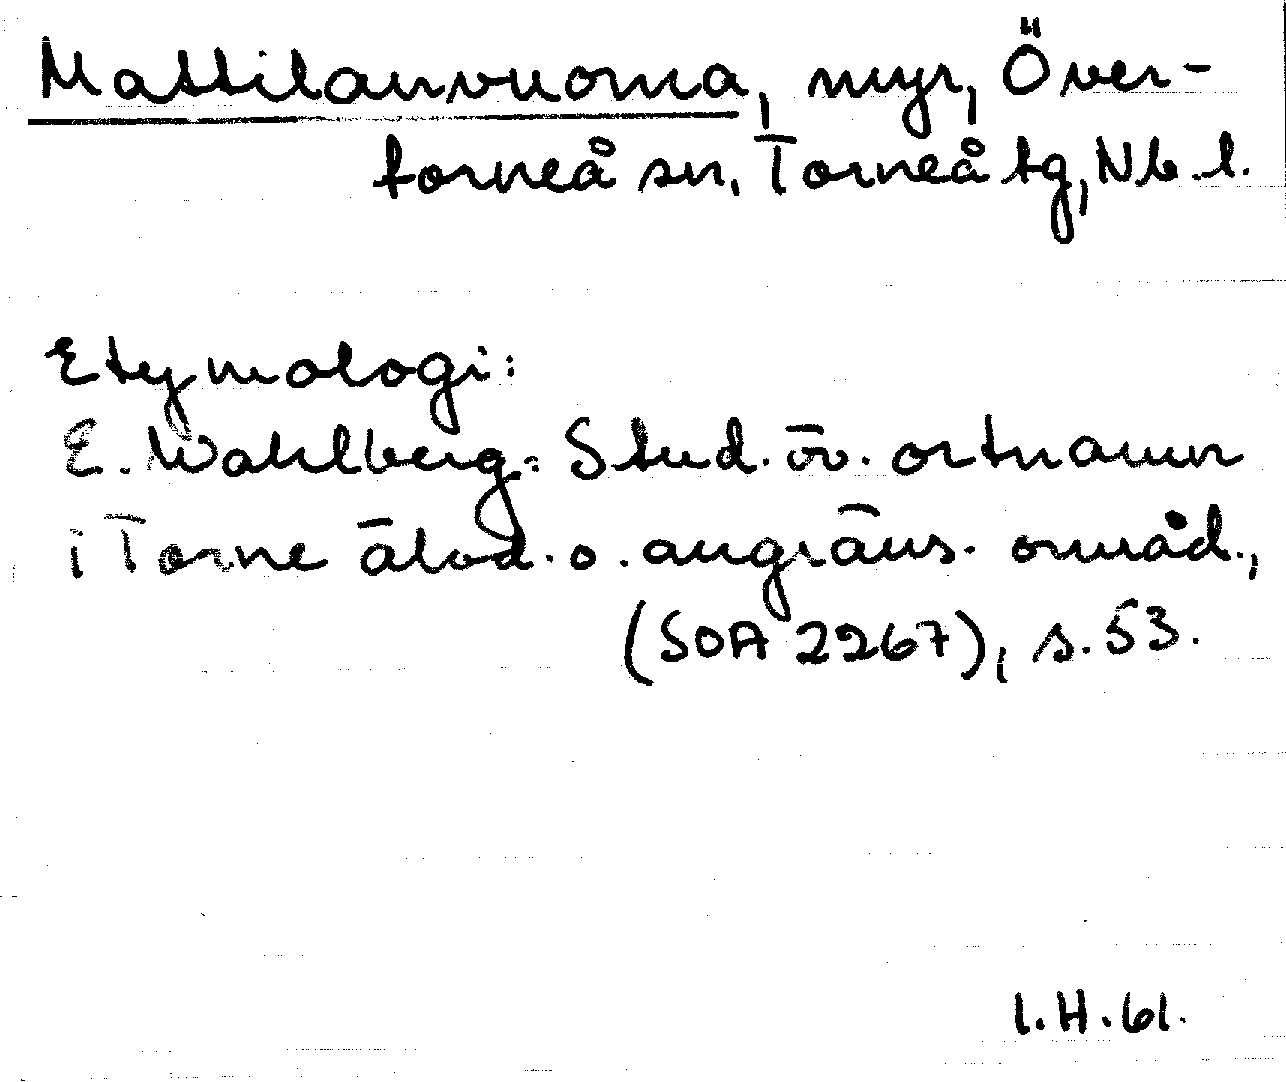 Mattilanvuoma, myr, Över-
torneå sn, Torneå tg, Nb.l.
Etymologi:
E. Wahlberg: Stud. öv. ortnamn
i Torne älvd. o. angräns. områd.,
(SOA 2267), s. 53.
I.H. 61.